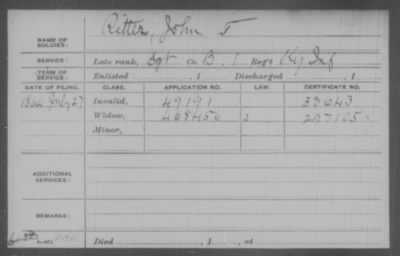 NAME OF SOLDIER: Ritter, John T
SERVICE: Late rank, Sgt Co. B, 1 Reg't Ky Inf
TERM OF SERVICE: Enlisted , 1 Discharged , 1
DATE OF FILING. CLASS. APPLICATION NO. LAW. CERTIFICATE NO.
1864 July 27 Invalid, 49191 30643
Widow, 468456
Minor,
ADDITIONAL SERVICES:
REMARKS:
Died , 1 , at